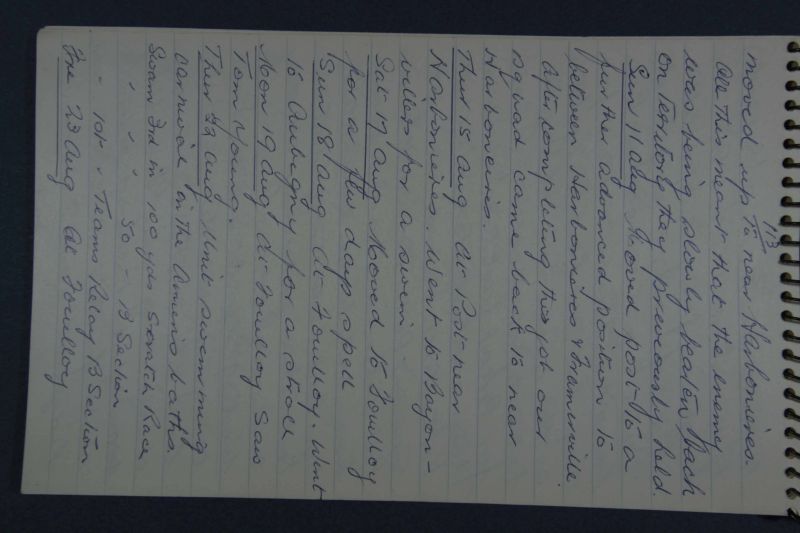 113
moved up to near Harbonieres.
All this meant that the enemy
was being slowly beaten back
on territory they previously held.
Sun 11 Aug Moved post to a
further advanced position to
between Harbonieres & Framerville.
After completing this job our
squad came back to near
Harbonieres.
Thur 15 Aug At Post near
Harbonieres. Went to Bayon-
villers for a swim.
Sat 17 Aug Moved to Fouilloy
for a few days spell
Sun 18 Aug At Fouilloy. Went
to Aubigny for a stroll
Mon 19 Aug At Fouilloy Saw
Tom Young.
Thur 22 Aug Unit swimming
carnival in the Amiens baths.
Swam 3rd in 100 yds scratch Race
" " " 50 - B Section
" 1st " Teams Relay B Section
Fri 23 Aug At Fouilloy